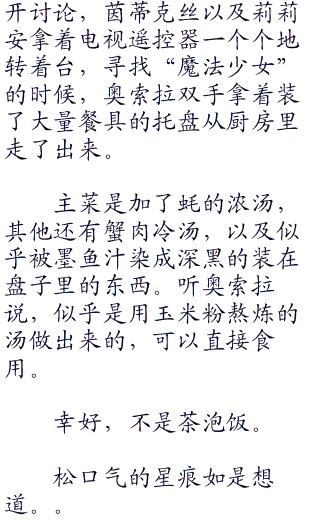 开讨论，茵蒂克丝以及莉莉
安拿着电视遥控器一个个地
转着台，寻找“魔法少女”
的时候，奥索拉双手拿着装
了大量餐具的托盘从厨房里
走了出来。
主菜是加了蚝的浓汤，
其他还有蟹肉冷汤，以及似
乎被墨鱼汁染成深黑的装在
盘子里的东西。听奥索拉
说，似乎是用玉米粉熬炼的
汤做出来的，可以直接食
用。
幸好，不是茶泡饭。
松口气的星痕如是想
道。。